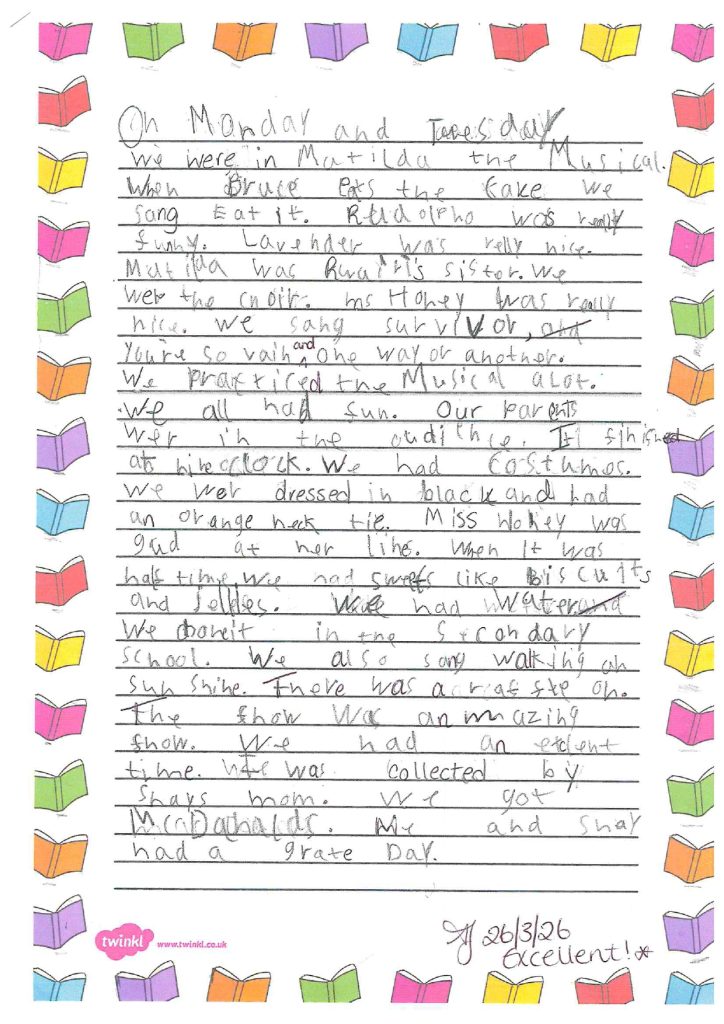 On Monday and Tuesday
we were in Matilda the Musical.
When Bruce eats the cake we
sang Eat it. Rudolpho was really
funny. Lavender was relly nice.
Matilda was Ruairi's sister. We
wer the choir. Ms Honey was really
nice. We sang survivor, and
You're so vain and one way or another.
We practiced the Musical alot.
We all had fun. Our parents
wer in the audience. It finished
at nine oclock. We had costumes.
We wer dressed in black and had
an orange neck tie. Miss Honey was
gud at her line. When it was
half time, we had sweets like biscuits
and jellies. We had water and
We done it in the Secondary
school. We also sang walking on
sun shine. There was a on.
The show was an mazing
show. We had an
time. We was collected by
Shays mom. We got
McDonalds. Me and Shay
had a grate Day.
twinkl www.twinkl.co.uk
26/3/26
Excellent!